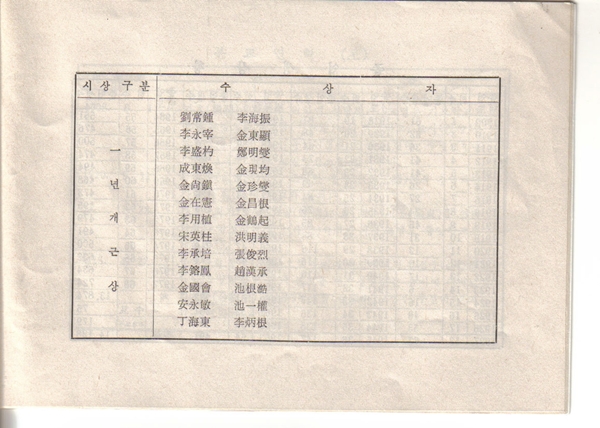 시상구분 수상자
一년개근상
劉常鍾 李海振
李永宰 金東顯
李盛杓 鄭明燮
成東煥 金琪均
金尙鎭 金珍燮
金在憲 金昌根
李用植 金鶴起
宋英柱 洪明義
李承培 張俊烈
李鎔鳳 趙漢承
金國會 池根皓
安永敏 池一權
丁海東 李炳根